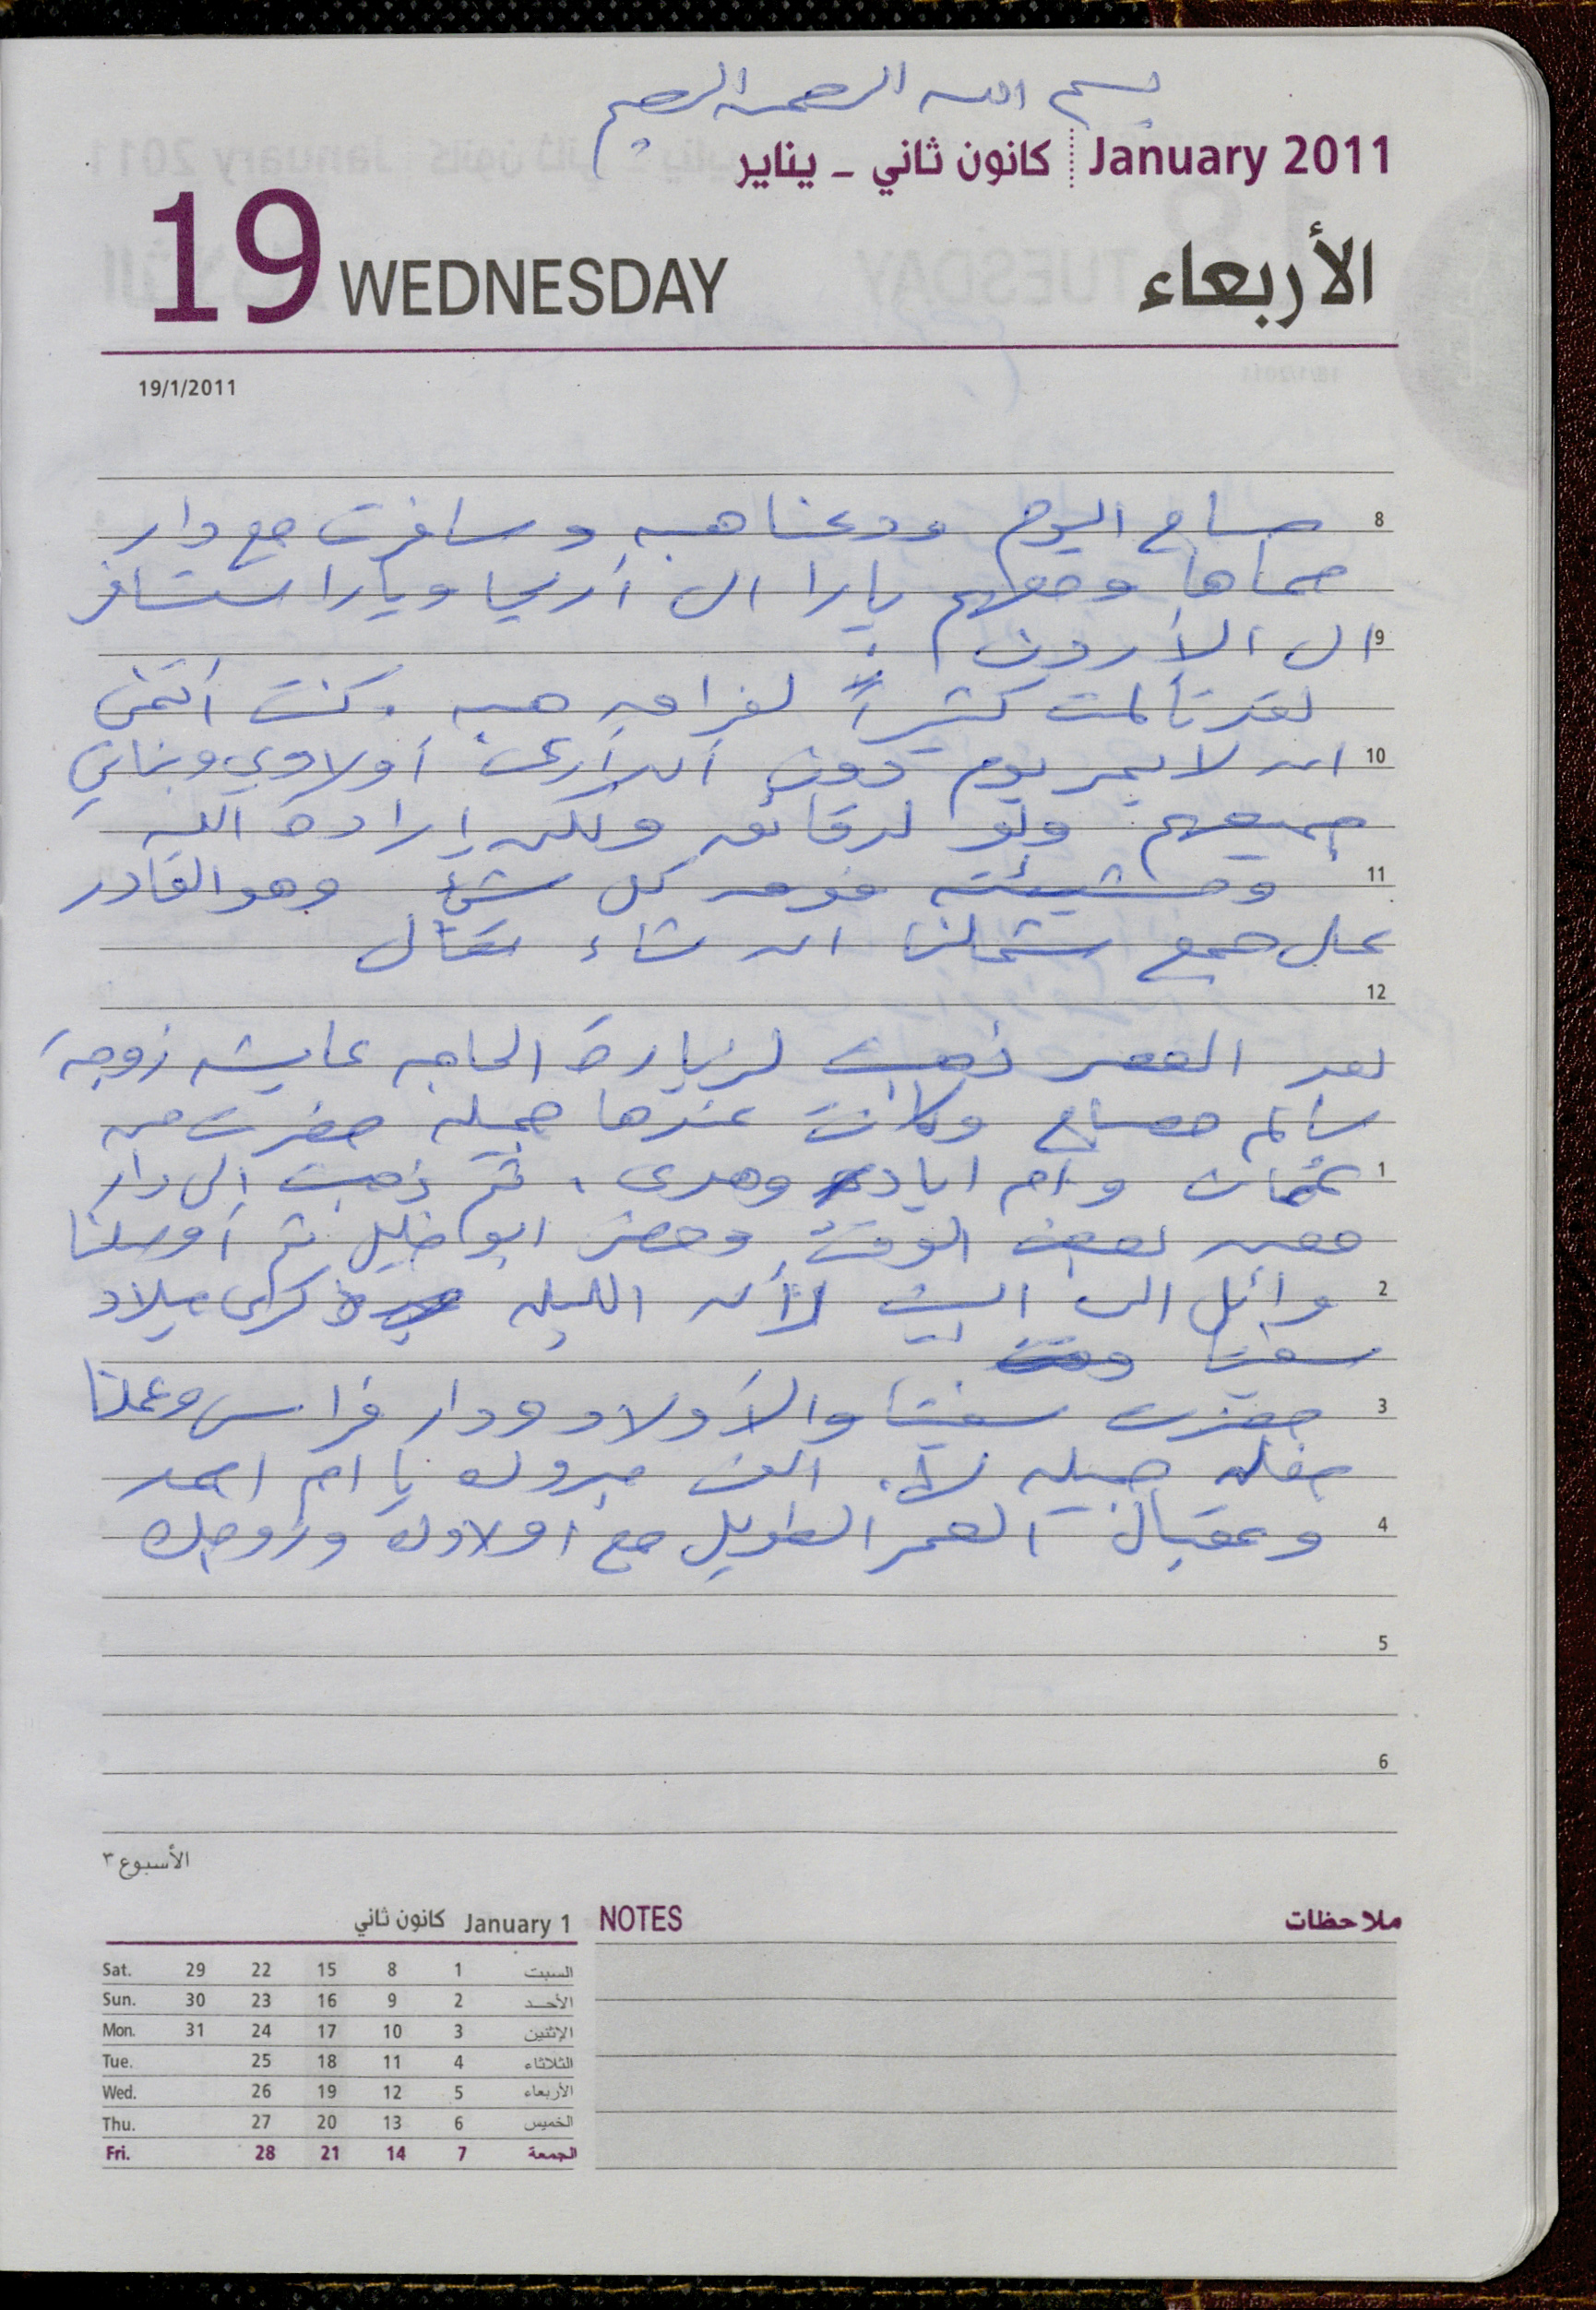 بسم الله الرحمن الرحيم
January 2011 كانون ثاني - يناير
19 WEDNESDAY الأربعاء
19/1/2011
8 صباح اليوم ودعنا هبه وسافرت مع دار
حماها ومعهم يارا الى أريحا ويارا ستسافر
9 الى الأردن
لقد تألمت كثيراً لفراق هبه. كنت أتمنى
10 ان لا يمر يوم دون أن أرى أولادي وبناتي
جميعهم ولو لدقائق ولكن إرادة الله
11 ومشيئته فوق كل شئ وهو القادر
على جمع شملنا ان شاء تعالى
12
بعد العصر ذهبت لزيارة الحاجه عايشه زوجة
سالم مصباح وكانت عندها جميله حضرت من
1 عمان وام اياد وهدى. ثم ذهبت إلى دار
معين بعض الوقت وحضر ابو خليل ثم أوصلنا
2 وائل الى البيت لأن الليله ذكرى ميلاد
سفيتا
3 حضرت سفيتا والأولاد ودار فراس وعملنا
حفله جميله لها. الف مبروك يا ام احمد
4 وعقبال العمر الطويل مع اولادك وزوجك
5
6
الأسبوع ٣
January 1 كانون ثاني
NOTES ملاحظات
Sat. 29 22 15 8 1 السبت
Sun. 30 23 16 9 2 الأحد
Mon. 31 24 17 10 3 الإثنين
Tue. 25 18 11 4 الثلاثاء
Wed. 26 19 12 5 الأربعاء
Thu. 27 20 13 6 الخميس
Fri. 28 21 14 7 الجمعة